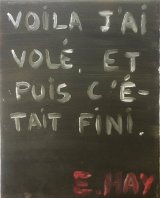 VOILA J'AI
VOLÉ, ET
PUIS C'É-
TAIT FINI.
E. HAY